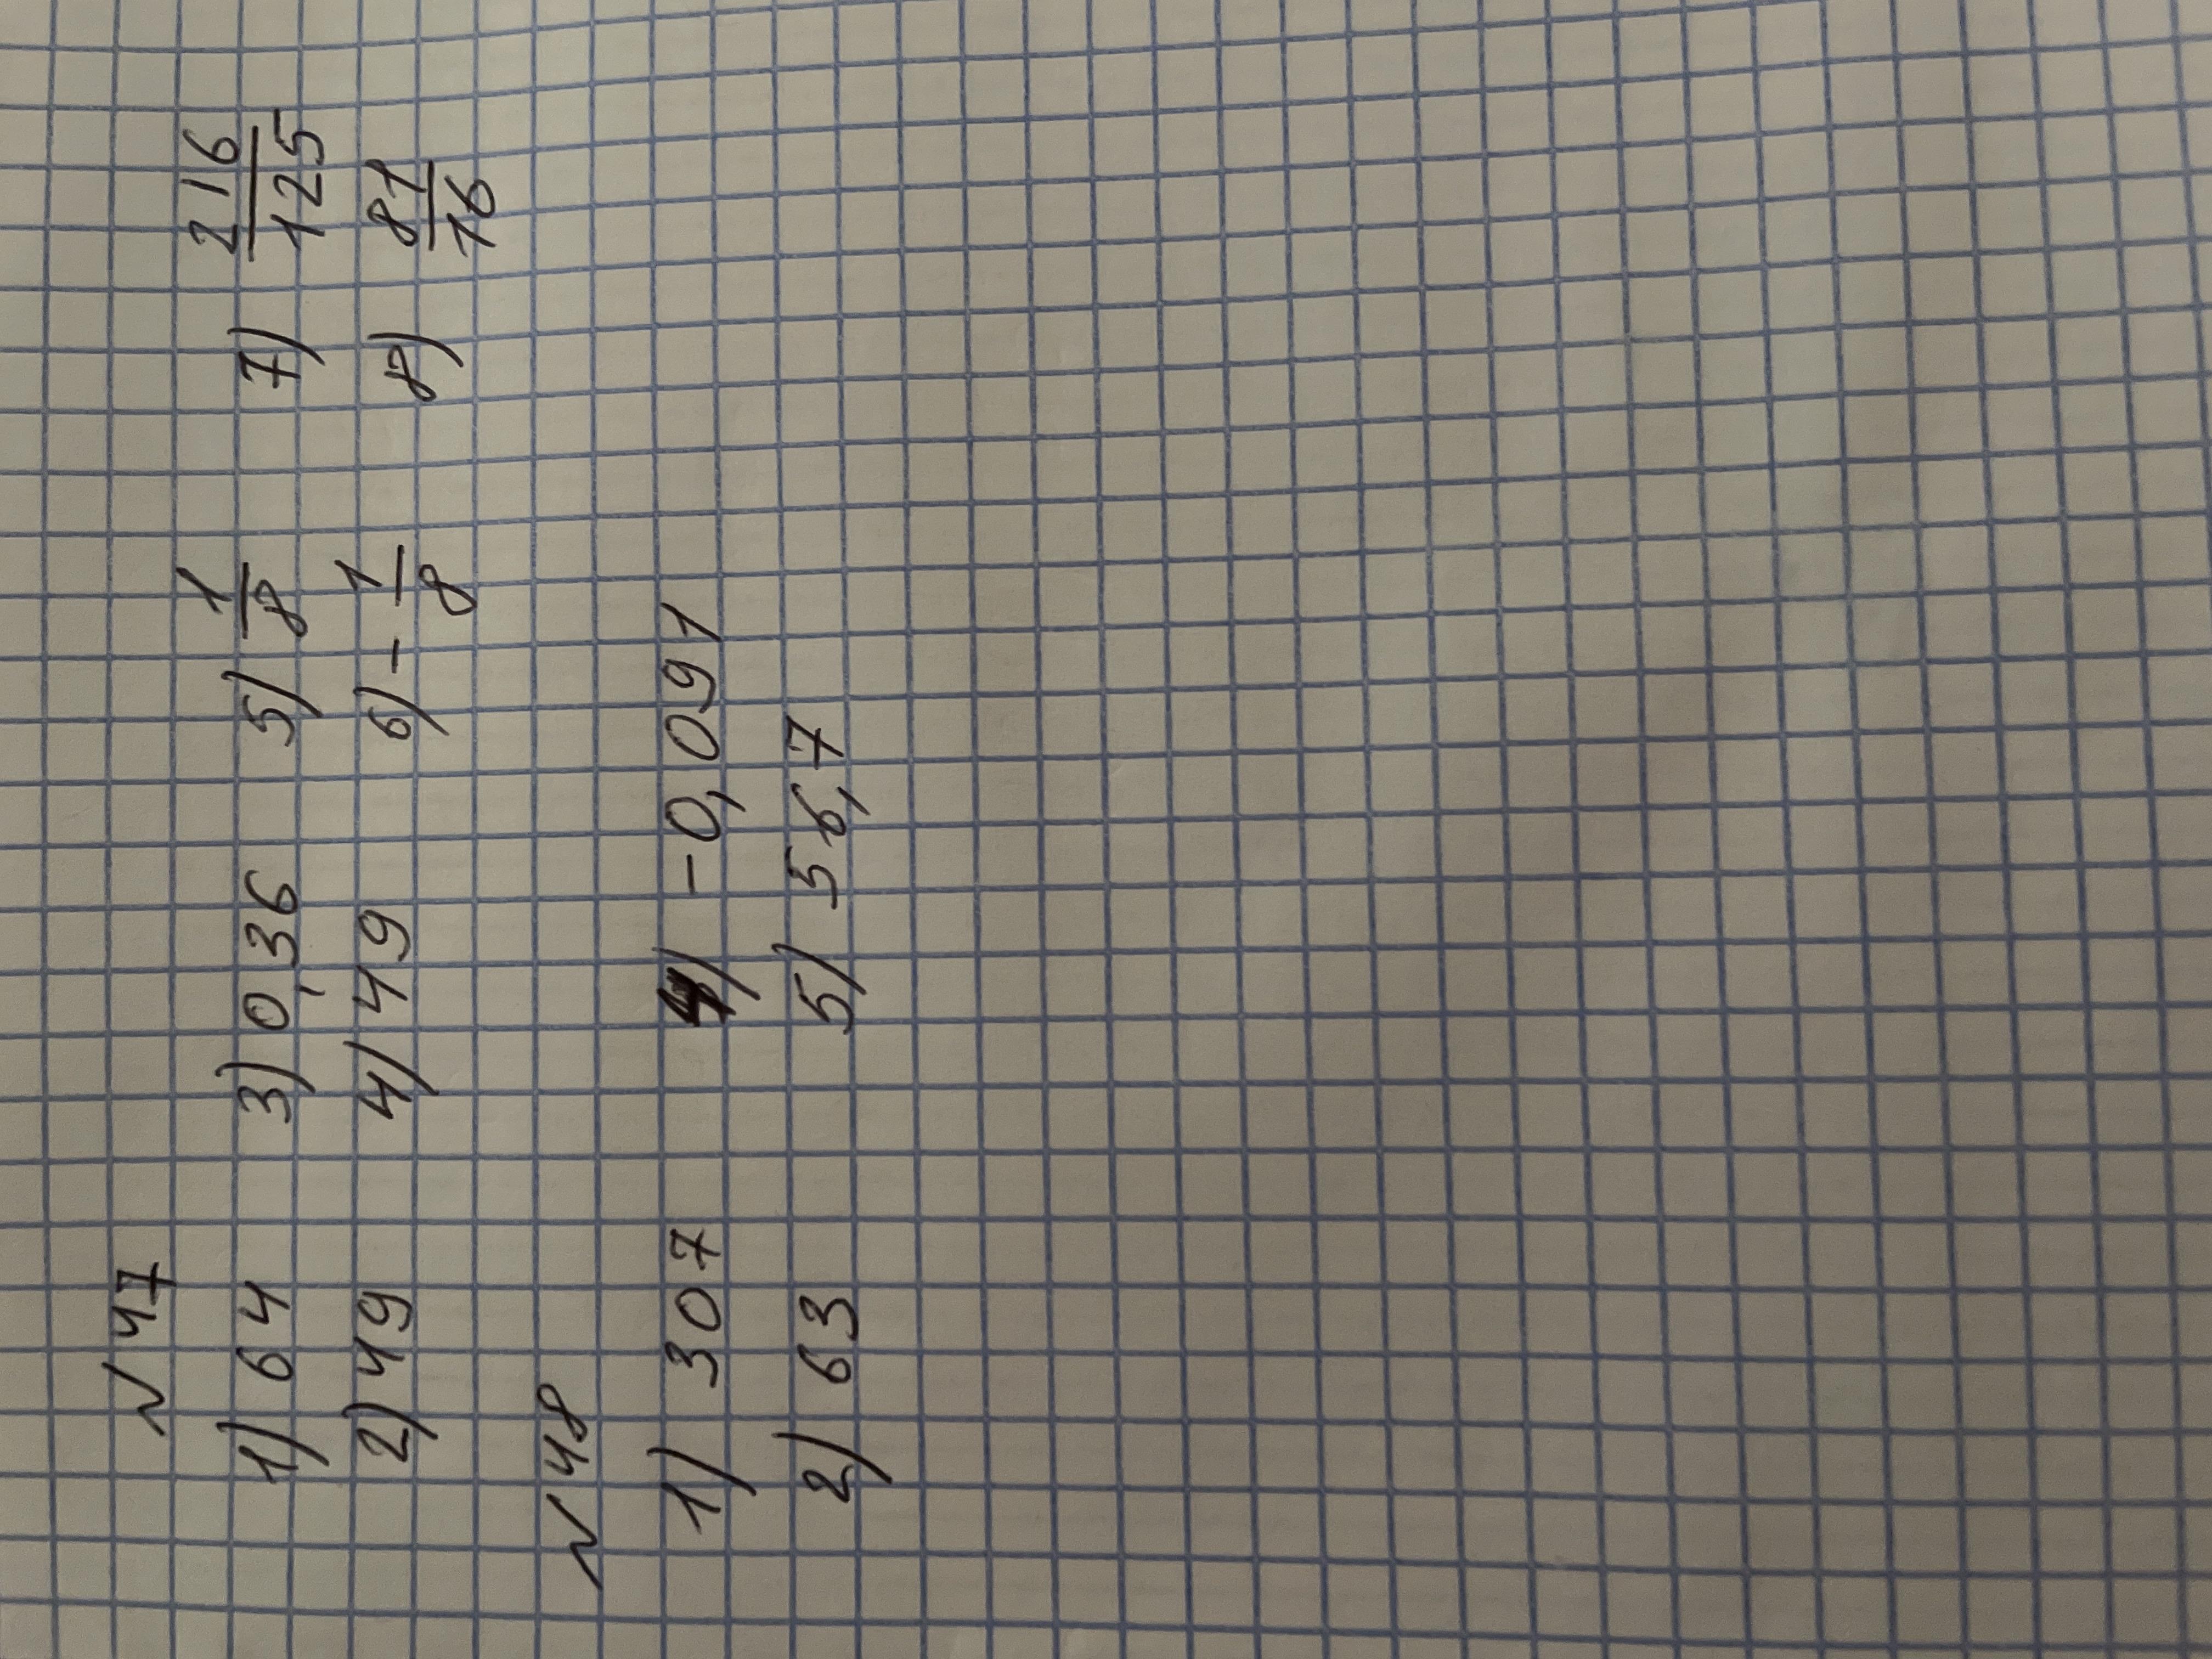 N 47
1) 64 3) 0,36 5) 1/8 7) 216/125
2) 49 4) 49 6) - 1/8 8) 81/16
N 48
1) 307 4) -0,091
2) 63 5) 56,7